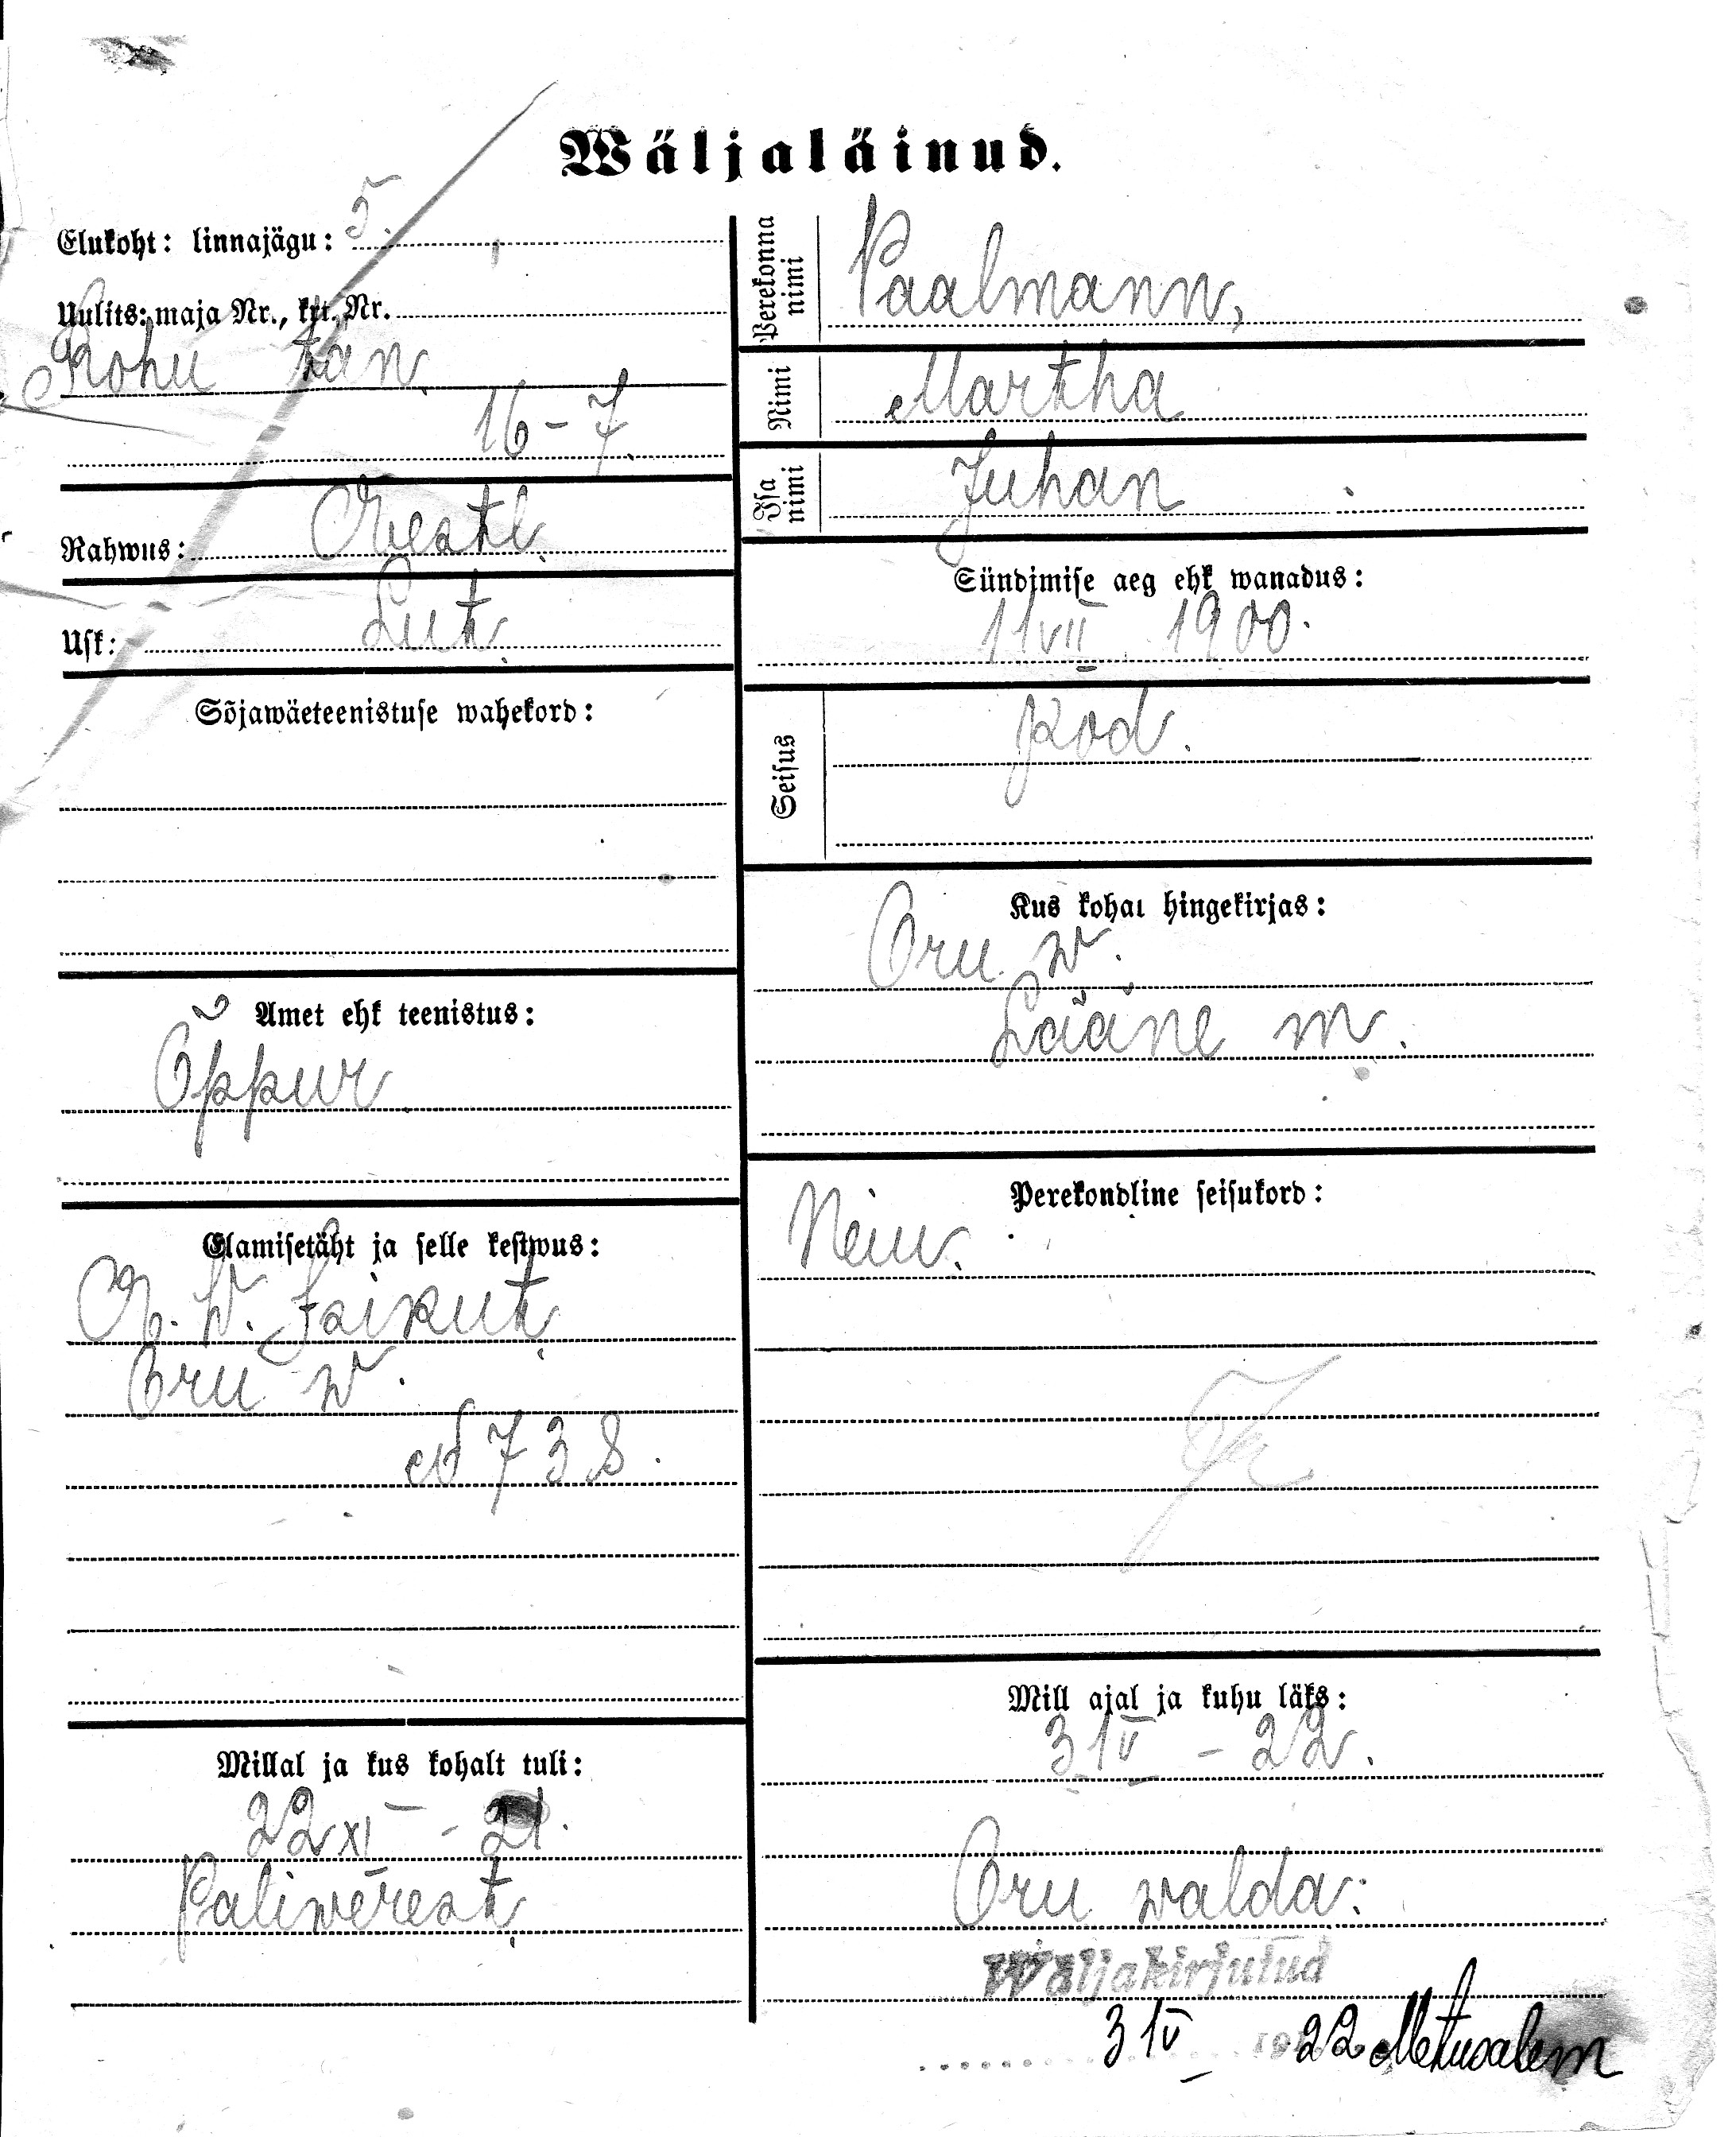 Wäljaläinud.
Elukoht: linnajägu: 5.
Uulits: maja Nr., krt. Nr.
Rohu tän.
16-7.
Rahwus: Eestl.
Usk: Lut.
Sõjawäeteenistuse wahekord:
Amet ehk teenistus:
Õppur
Elamisetäht ja selle kestwus:
E. W. Isikut.
Oru w.
N 738.
Millal ja kus kohalt tuli:
22 XI - 21.
Paliwerest.
Perekonna nimi Paalmann,
Nimi Martha
Isa nimi Juhan
Sündimise aeg ehk wanadus:
11 VII 1900.
Seisus Kod.
Kus kohal hingekirjas:
Oru w.
Lääne m.
Perekondline seisukord:
Neiu.
Mill ajal ja kuhu läks:
31 V - 22.
Oru walda:
Wäljakirjutud
31 V 22 Metusalem